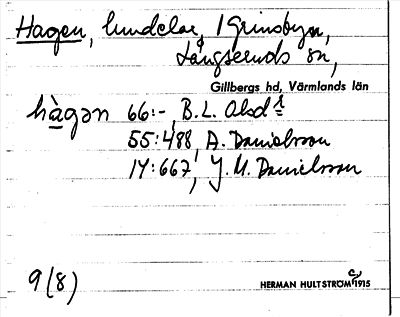 Hagen, lundelar, 1 Grinsbyn,
Långseruds sn,
Gillbergs hd, Värmlands län
hàgən 66:-, B.L. Olsd r
55:488, A. Danielsson
14:667, J. M. Danielsson
9(8)
HERMAN HULTSTRÖM 1915